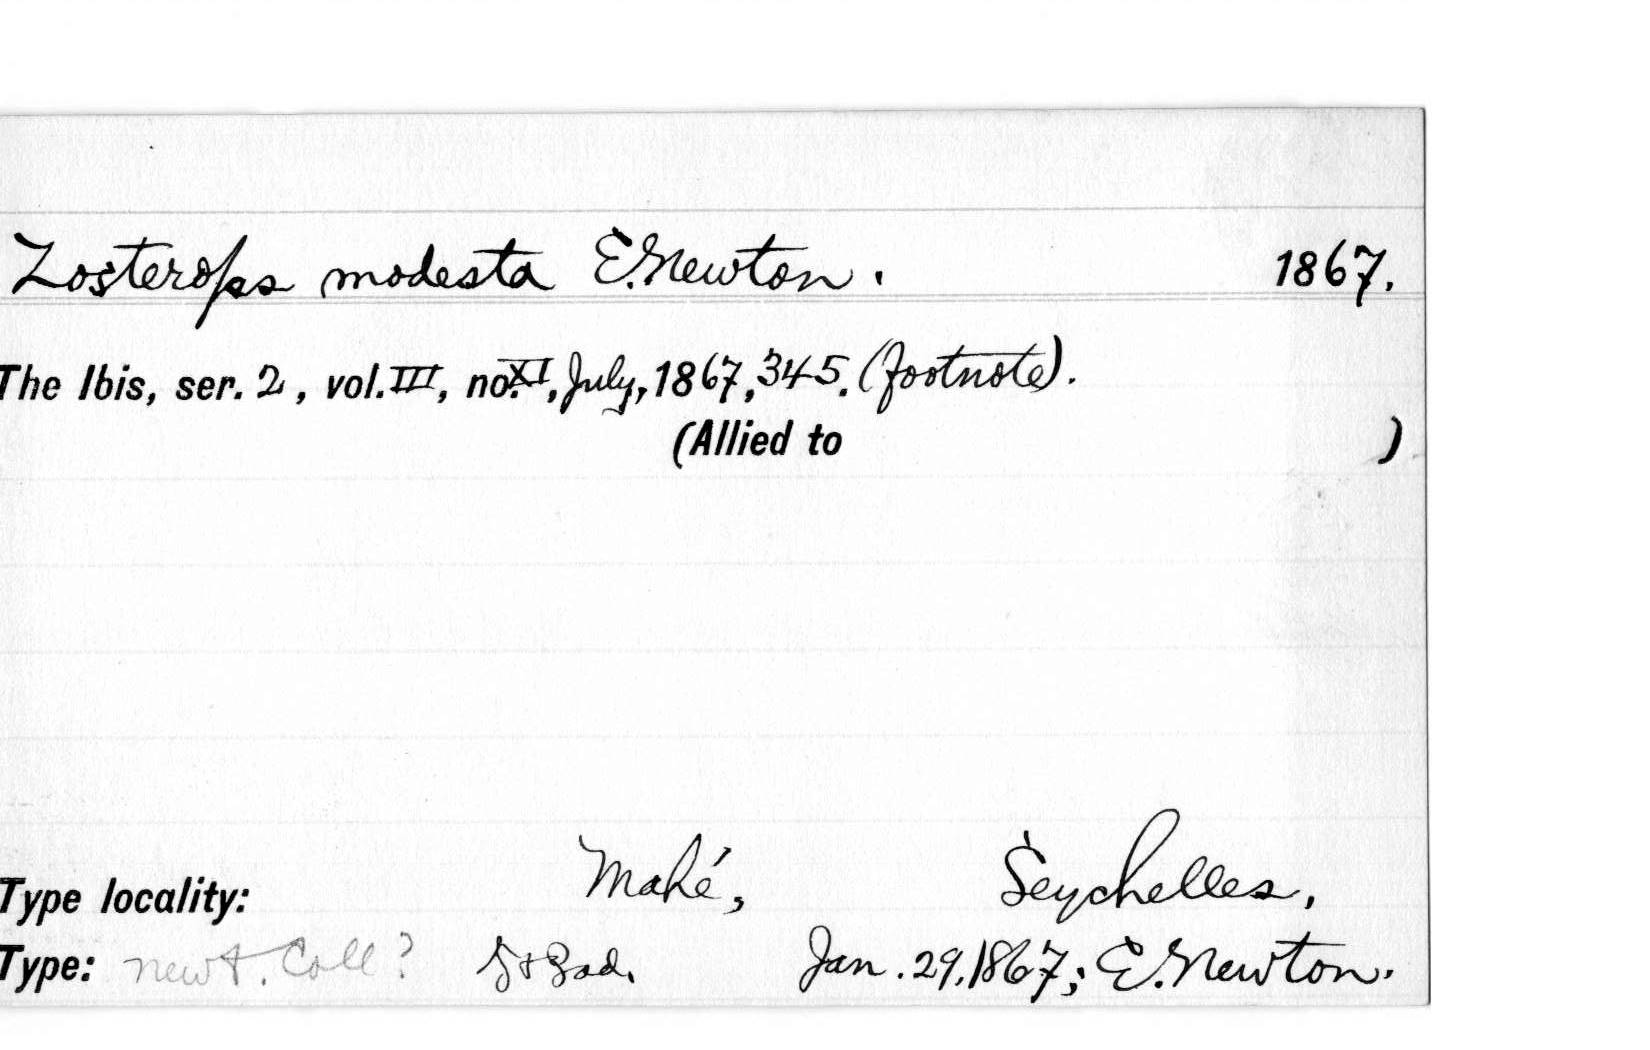 Zosterops modesta E. Newton. 1867.
The Ibis, ser. 2, vol. III, no. XI, July, 1867, 345. (footnote).
(Allied to )
Type locality: Mahé, Seychelles,
Type: Newt. Coll? ad. Jan. 29, 1867; E. Newton.